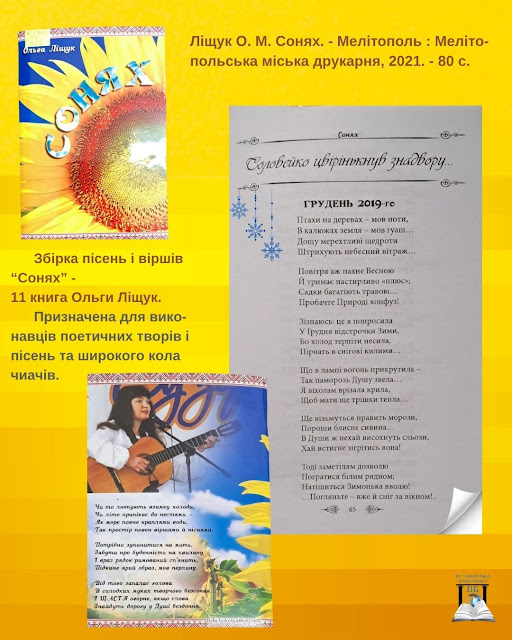 Ліщук О. М. Сонях. - Мелітополь : Меліто-
польська міська друкарня, 2021. - 80 с.
Ольга Ліщук
СОНЯХ
Сонях
Соловейко цвірінькнув знадвору...
ГРУДЕНЬ 2019-го
Птахи на деревах – мов ноти,
В калюжах земля – мов гуаш…
Дощу мерехтливі щедроти
Штрихують небесний вітраж…
Повітря аж пахне Весною
Й тримає настирливо «плюс»;
Садки багатіють травою…
Пробачте Природі конфуз!
Зізнаюсь: це я попросила
У Грудня відстрочки Зими,
Бо холод терпіти несила,
Пірнать в снігові килими…
Що в лампі вогонь прикрутила –
Так паморозь Душу звела…
Я віхолам врізала крила,
Щоб мати ще трішки тепла…
Ще візьмуться править морози,
Пороши блисне сивина…
В Души ж нехай висохнуть сльози,
Хай встигне зігрітись вона!
Тоді заметілям дозволю
Погратися білим рядном;
Натішиться Зимонька вволю!
…Погляньте – вже й сніг за вікном!..
65
Збірка пісень і віршів
“Сонях” -
11 книга Ольги Ліщук.
Призначена для вико-
навців поетичних творів і
пісень та широкого кола
чиачів.
Чи то лютують взимку холоди,
Чи літо припікає до нестями –
Як море повне краплями води,
Так простір повен віршами й піснями.
Потрібно зупинитися на мить,
Забути про буденність на хвилину
І враз рядок римований сп'янить,
Підкине край образ, мов перлину.
Від того запалає голова
В солодких муках творчого безсоння
І ЩАСТЯ огорне, якщо слова
Знайдуть дорогу у Душі бездоння.